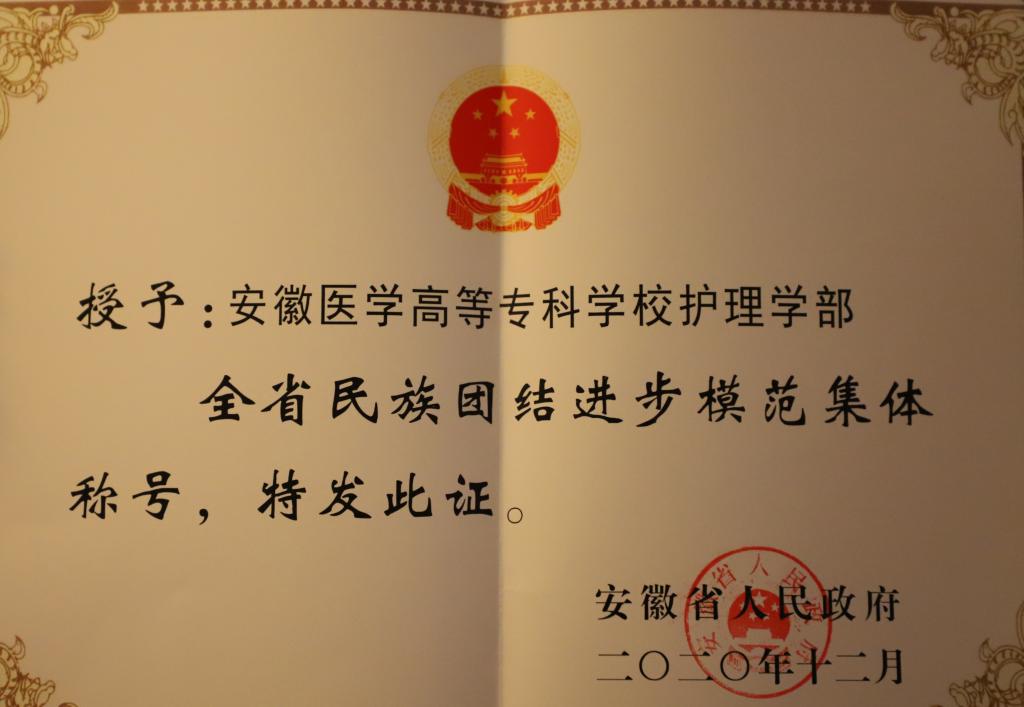 授予：安徽医学高等专科学校护理学部
全省民族团结进步模范集体
称号，特发此证。
安徽省人民政府
二〇二〇年十二月
安徽省人民政府